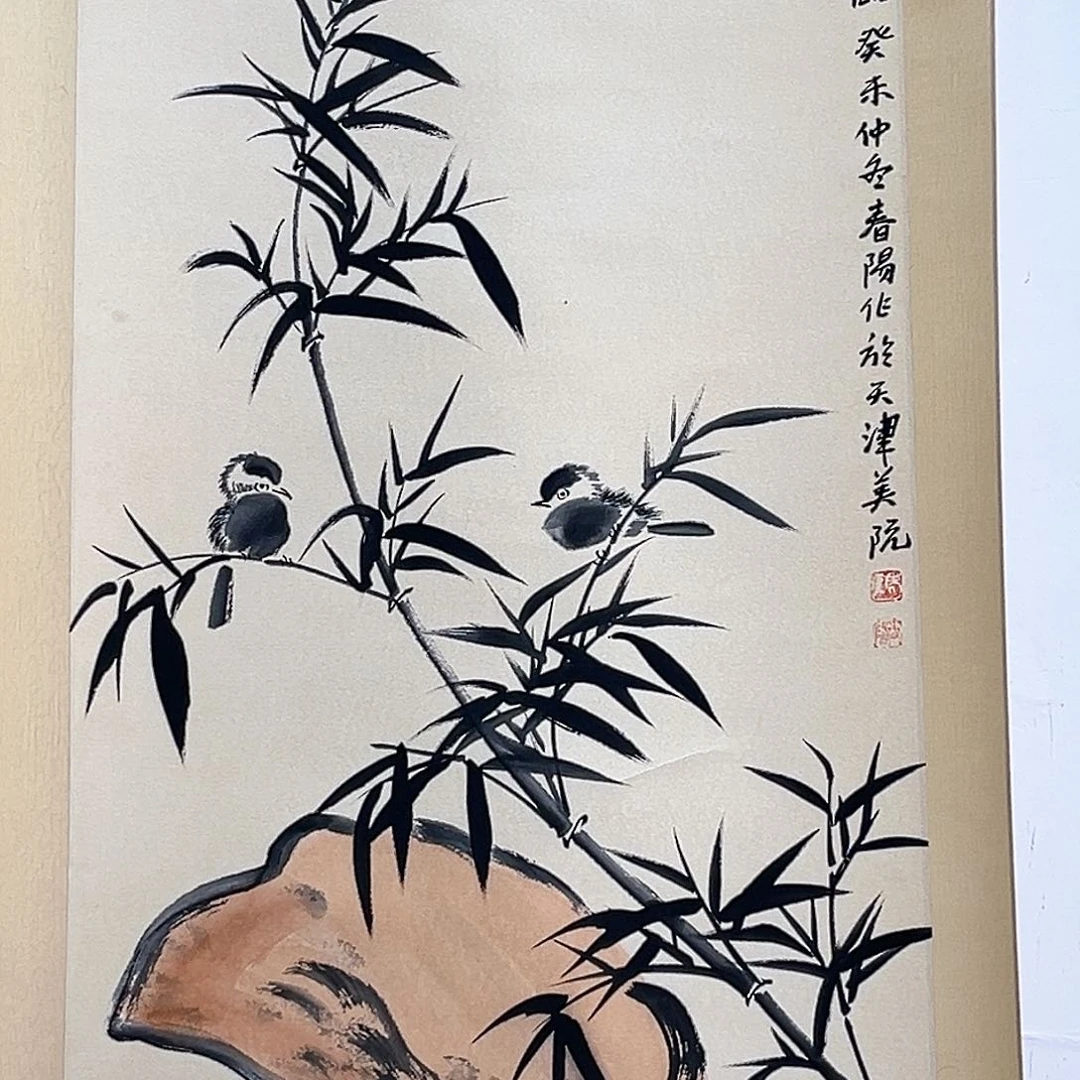 癸未仲冬春陽作於天津美院